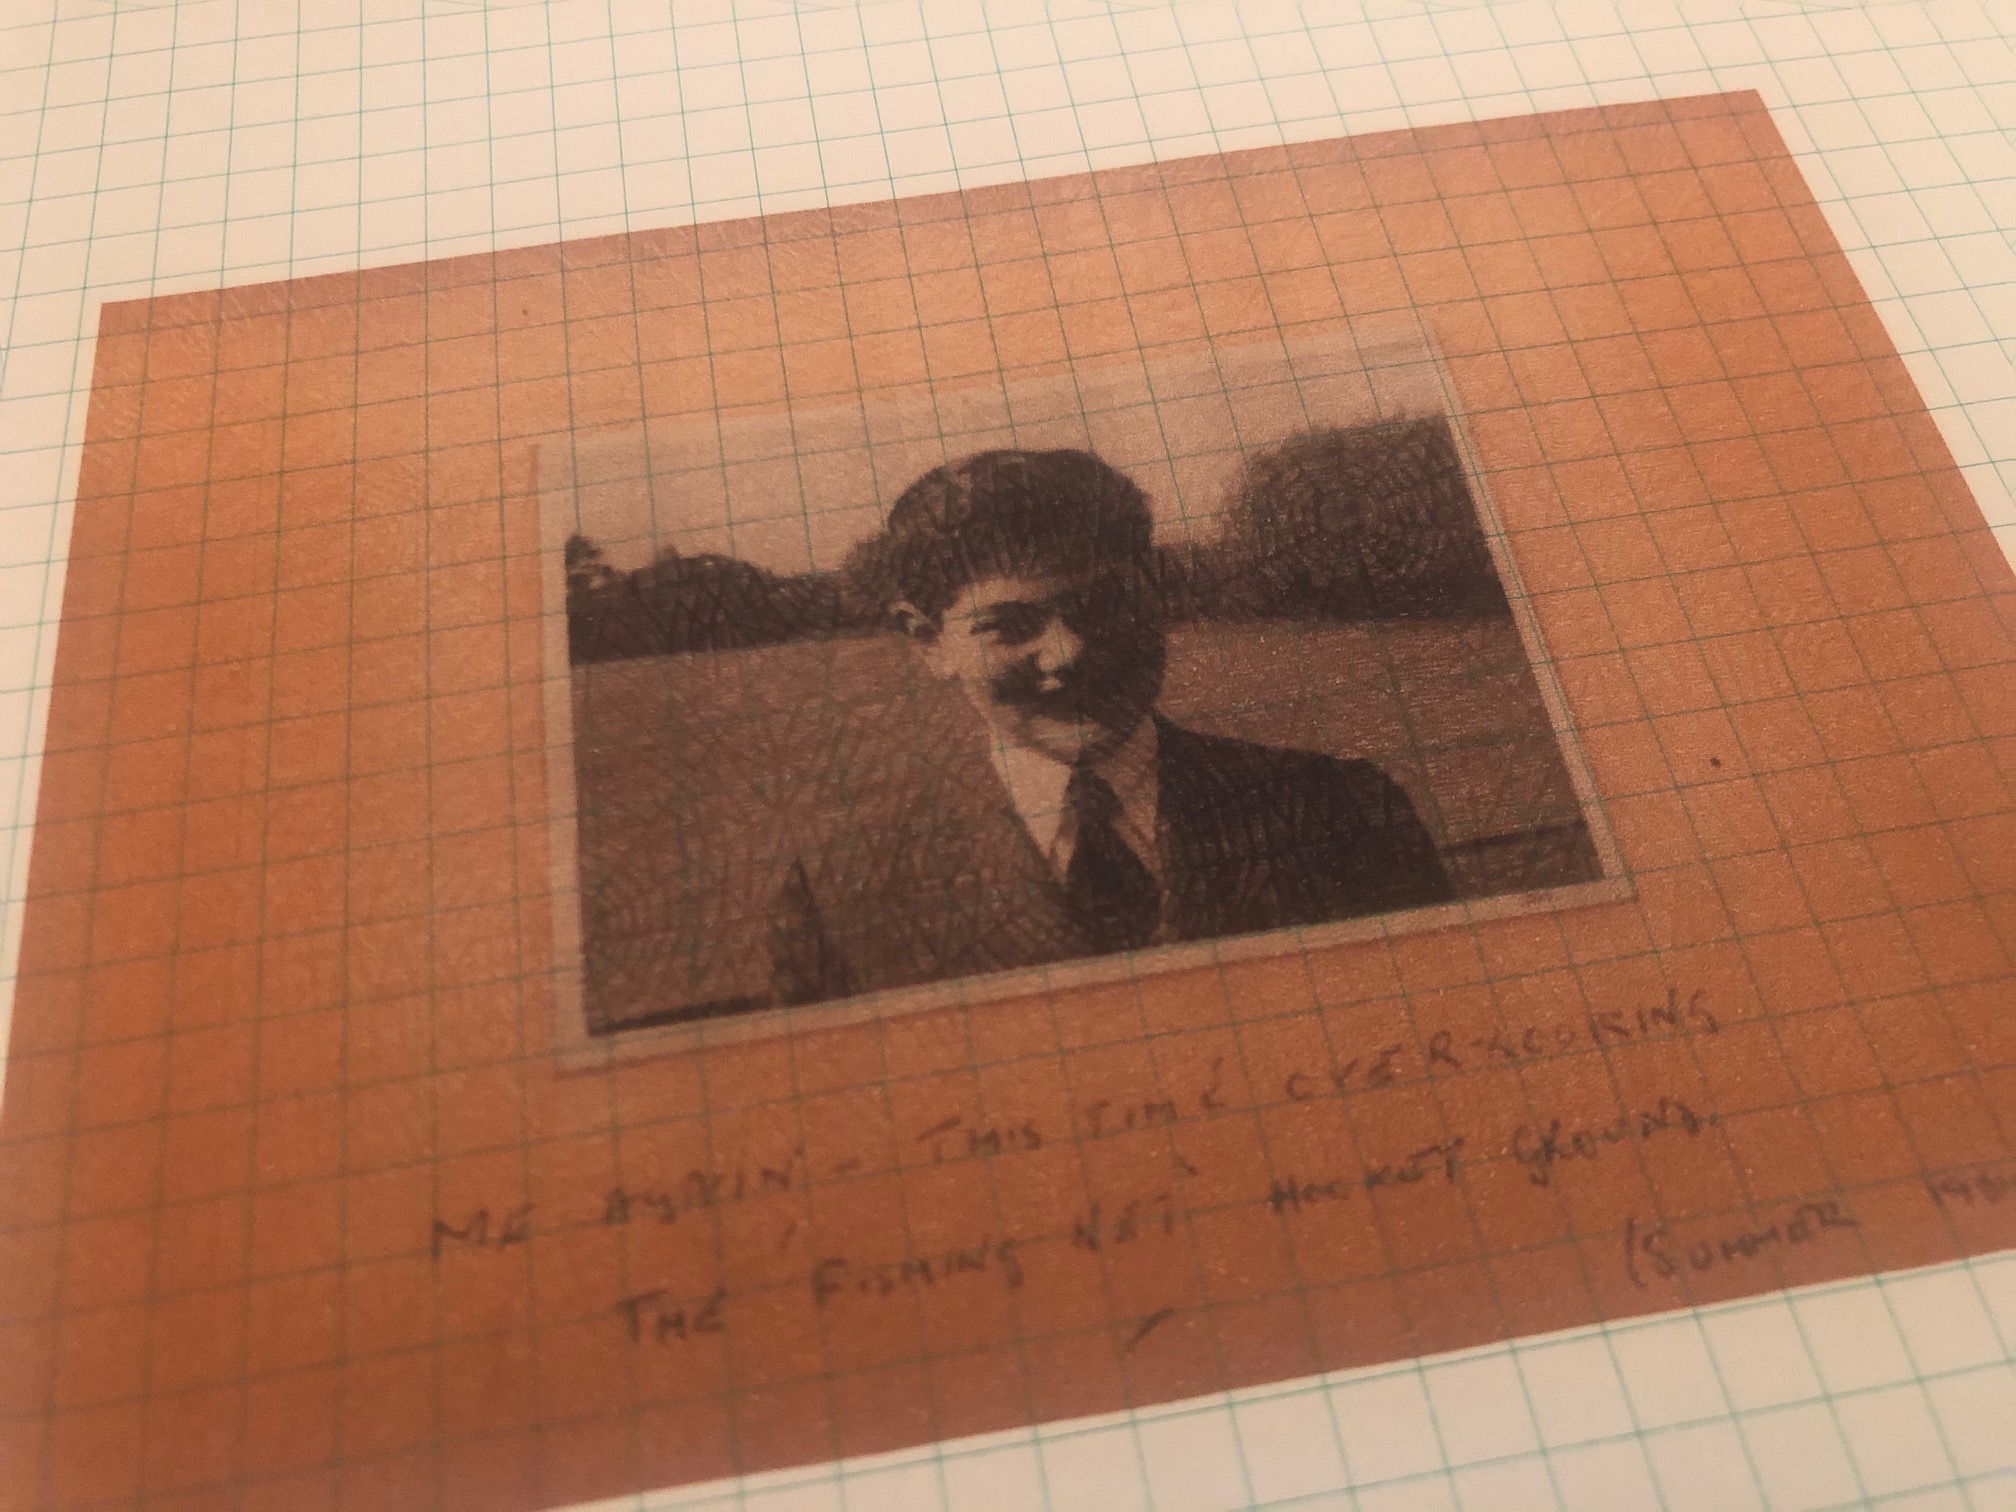 ME AGAIN - THIS TIME OVER-LOOKING
THE FISHING NET HOCKEY GROUND.
(SUMMER